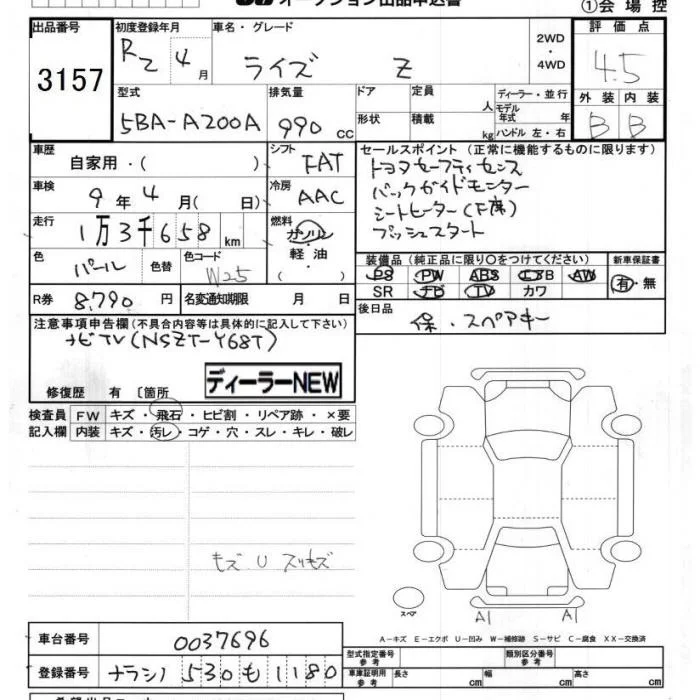 オークション出品申込書
①会場控
出品番号 初度登録年月 車名・グレード 2WD ・ 4WD 評価点
3157 R2年 4月 ライズ Z 4.5
型式 排気量 ドア 定員 人 ディーラー・並行 外装 内装
5BA-A200A 990 cc 形状 積載 kg モデル年式 年 ハンドル 左・右 B B
車歴 自家用・( ) シフト FAT セールスポイント (正常に機能するものに限ります)
トヨタセーフティセンス
車検 9年 4月( 日) 冷房 AAC バックガイドモニター
シートヒーター(F席)
走行 1万3千658km 燃料 ガソリン 軽・油 ( ) プッシュスタート
色 パール 色替 色コード W25 装備品 (純正品に限り○をつけてください) 新車保証書
PS PW ABS エアB AW 有・無
SR ナビ TV カワ
R券 8,790円 名変通知期限 月 日 後日品
保・スペアキー
注意事項申告欄(不具合内容等は具体的に記入して下さい)
ナビTV(NSZT-Y68T)
修復歴 有 〔箇所 ディーラーNEW
検査員 FW キズ・飛石・ヒビ割・リペア跡・×要
記入欄 内装 キズ・汚レ・コゲ・穴・スレ・キレ・破レ
キズ U スリキズ
スペア A1 A1
A-キズ E-エクボ U-凹み W-補修跡 S-サビ C-腐食 XX-交換済
車台番号 0037696 型式指定番号 参考 類別区分番号 参考
登録番号 ナラシノ 530 も 1180 車庫証明用 参考 長さ cm 幅 cm 高さ cm